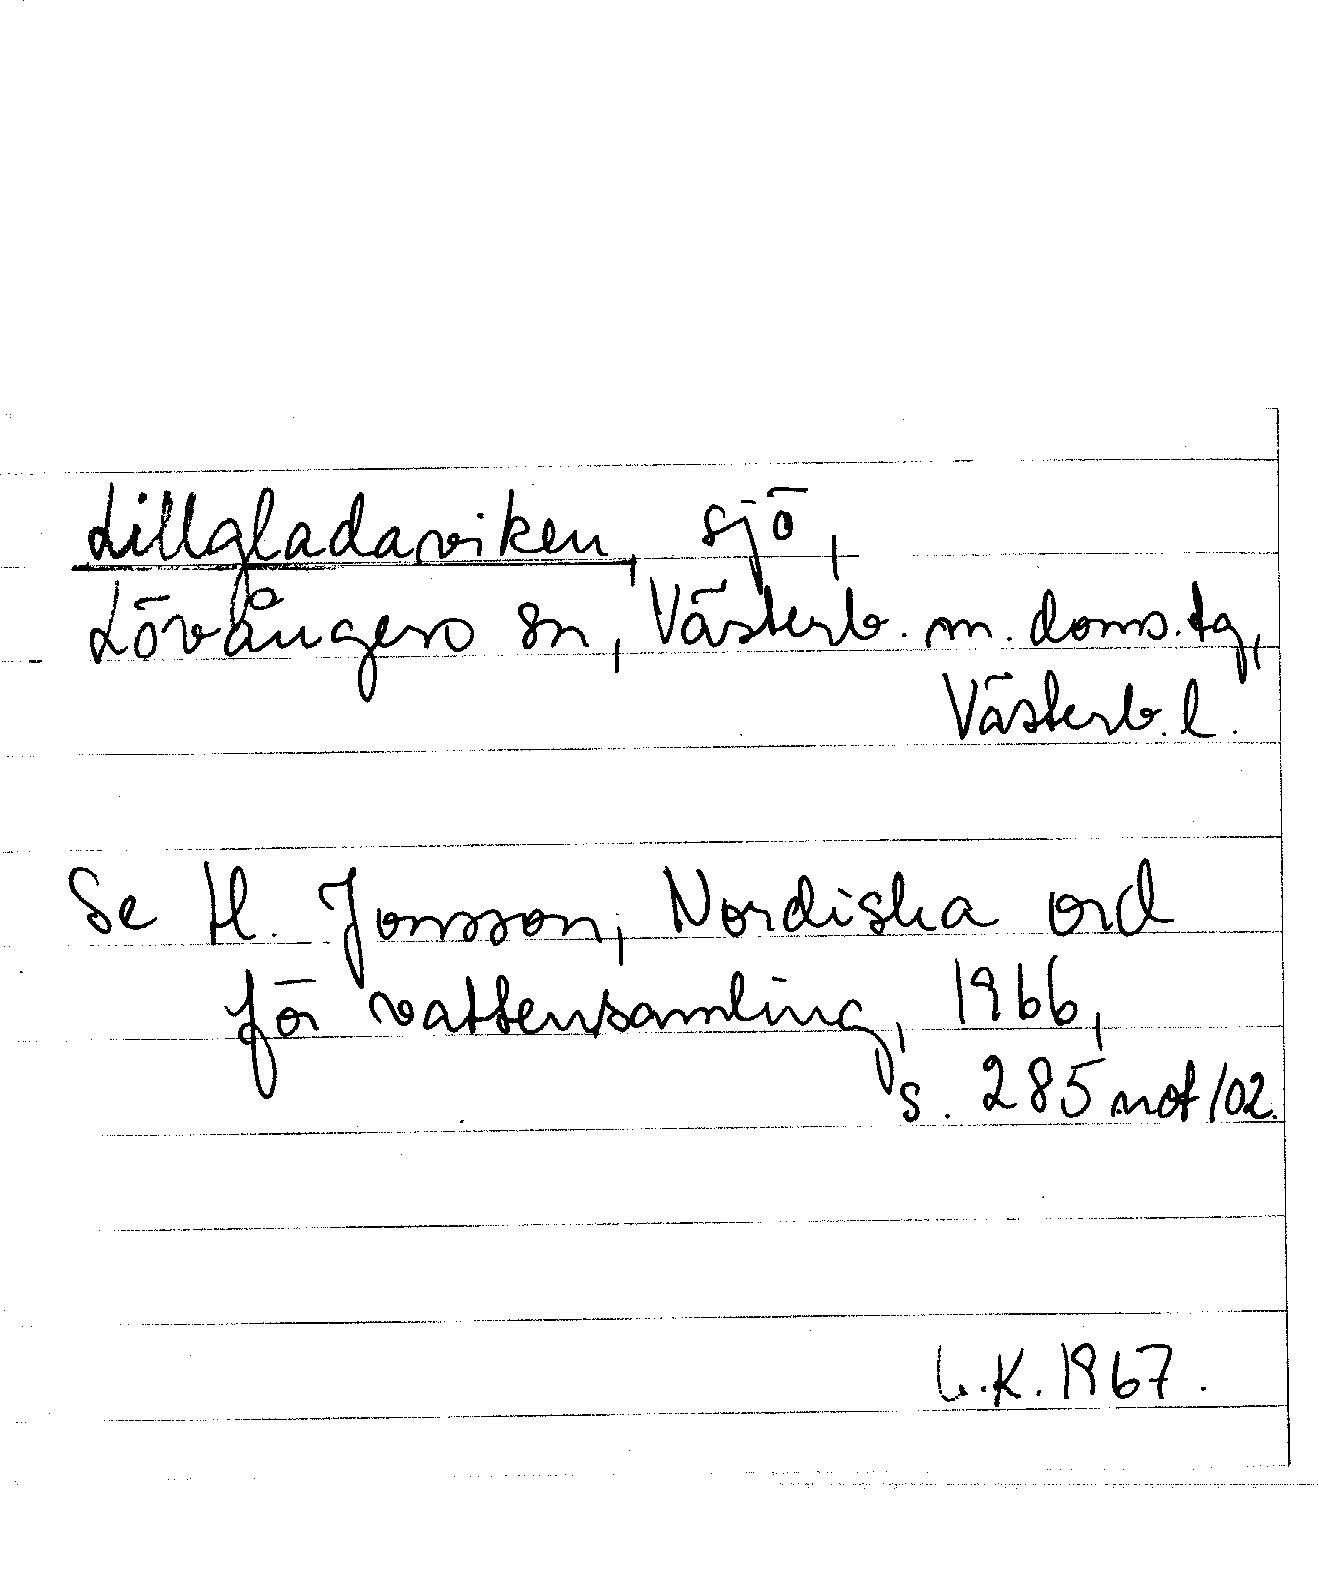 Lillgladaviken, sjö,
Lövångers sn, Västerb. m. doms. tg,
Västerb. l.
Se H. Jonsson, Nordiska ord
för vattensamling, 1966,
s. 285 not 102.
L.K. 1967.